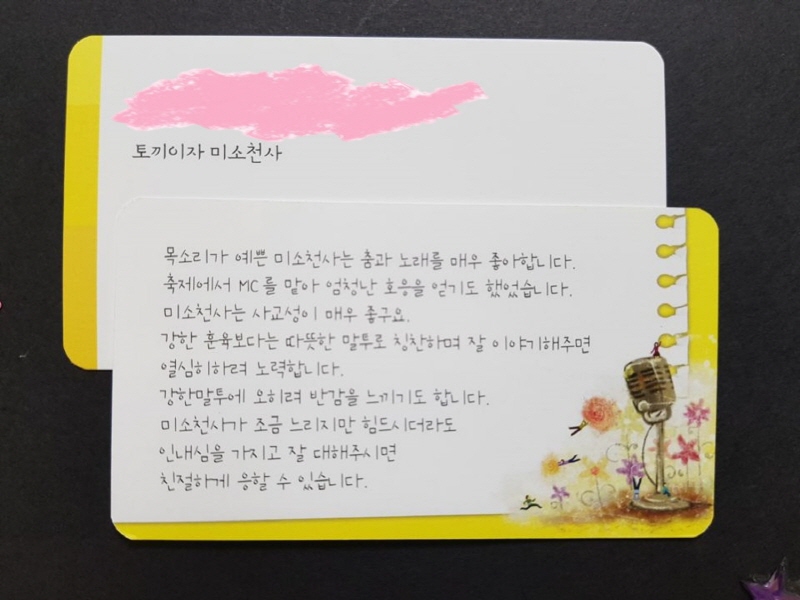 토끼이자 미소천사
목소리가 예쁜 미소천사는 춤과 노래를 매우 좋아합니다.
축제에서 MC를 맡아 엄청난 호응을 얻기도 했었습니다.
미소천사는 사교성이 매우 좋구요.
강한 훈육보다는 따뜻한 말투로 칭찬하며 잘 이야기해주면
열심히하려 노력합니다.
강한말투에 오히려 반감을 느끼기도 합니다.
미소천사가 조금 느리지만 힘드시더라도
인내심을 가지고 잘 대해주시면
친절하게 응할 수 있습니다.